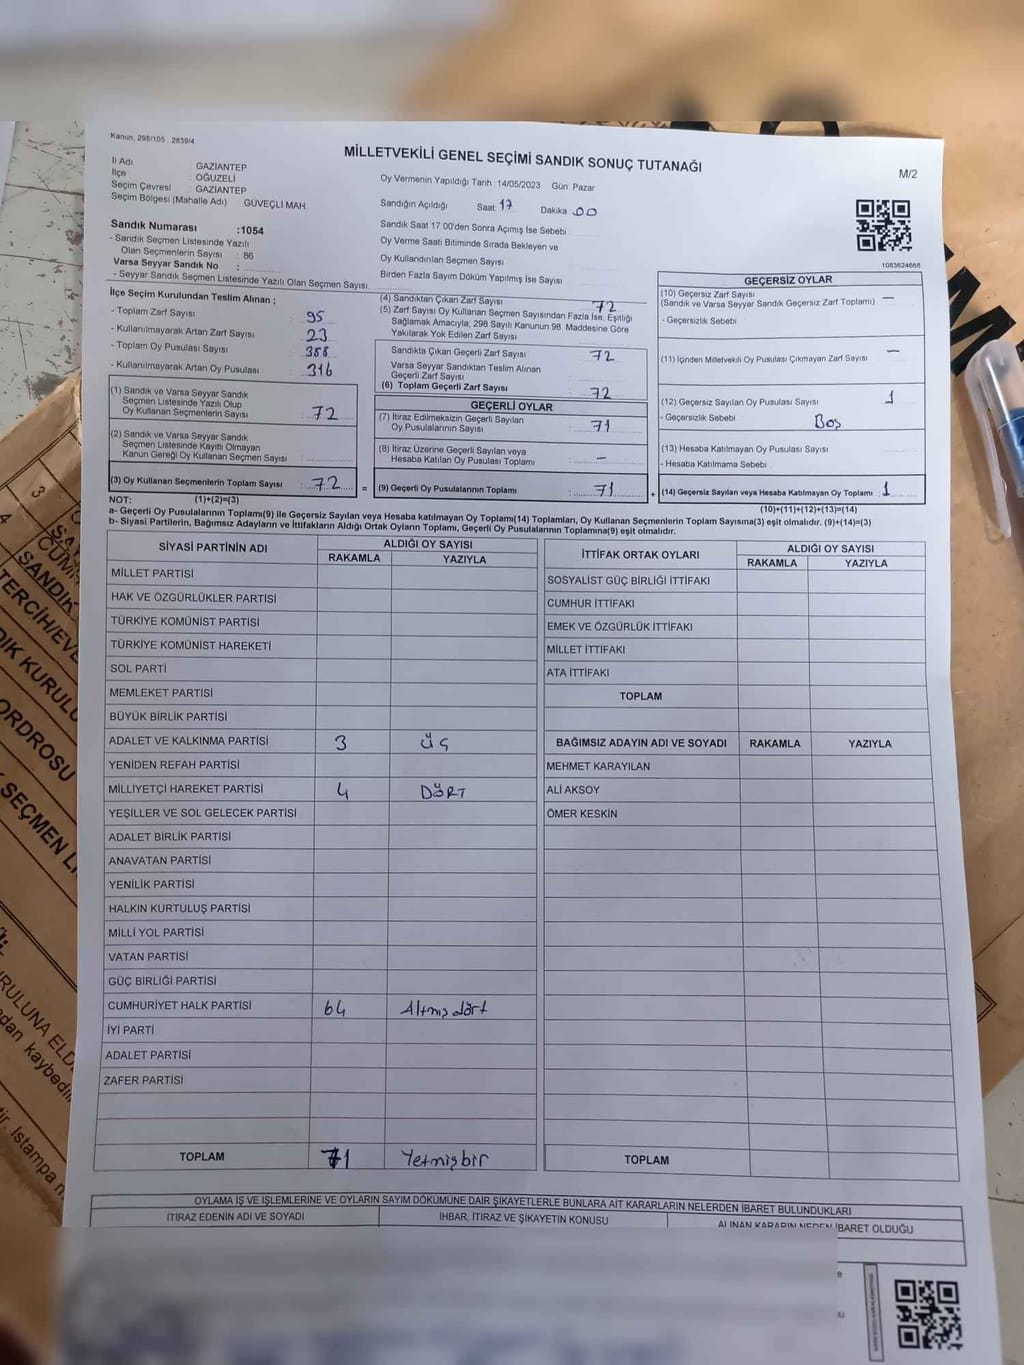 Kanun, 298/105 2839/4
MİLLETVEKİLİ GENEL SEÇİMİ SANDIK SONUÇ TUTANAĞI
M/2
İl Adı : GAZİANTEP
İlçe : OĞUZELİ
Seçim Çevresi : GAZİANTEP
Seçim Bölgesi (Mahalle Adı) GÜVEÇLİ MAH.
Oy Vermenin Yapıldığı Tarih :14/05/2023 Gün: Pazar
Sandığın Açıldığı Saat 17 Dakika 00
Sandık Numarası :1054
- Sandık Seçmen Listesinde Yazılı
Olan Seçmenlerin Sayısı : 86
Varsa Seyyar Sandık No :
- Seyyar Sandık Seçmen Listesinde Yazılı Olan Seçmen Sayısı:
Sandık Saat 17.00'den Sonra Açımış İse Sebebi
Oy Verme Saati Bitiminde Sırada Bekleyen ve
Oy Kullandırılan Seçmen Sayısı
Birden Fazla Sayım Döküm Yapılmış İse Sayısı
1083624666
İlçe Seçim Kurulundan Teslim Alınan ;
- Toplam Zarf Sayısı : 95
- Kullanılmayarak Artan Zarf Sayısı : 23
- Toplam Oy Pusulası Sayısı : 388
- Kullanılmayarak Artan Oy Pusulası : 316
(1) Sandık ve Varsa Seyyar Sandık
Seçmen Listesinde Yazılı Olup
Oy Kullanan Seçmenlerin Sayısı : 72
(2) Sandık ve Varsa Seyyar Sandık
Seçmen Listesinde Kayıtlı Olmayan
Kanun Gereği Oy Kullanan Seçmen Sayısı :
(3) Oy Kullanan Seçmenlerin Toplam Sayısı : 72 =
(4) Sandıktan Çıkan Zarf Sayısı 72
(5) Zarf Sayısı Oy Kullanan Seçmen Sayısından Fazla İse, Eşitliği
Sağlamak Amacıyla; 298 Sayılı Kanunun 98. Maddesine Göre
Yakılarak Yok Edilen Zarf Sayısı
Sandıkta Çıkan Geçerli Zarf Sayısı 72
Varsa Seyyar Sandıktan Teslim Alınan
Geçerli Zarf Sayısı
(6) Toplam Geçerli Zarf Sayısı 72
GEÇERLİ OYLAR
(7) İtiraz Edilmeksizin Geçerli Sayılan
Oy Pusulalarının Sayısı : 71
(8) İtiraz Üzerine Geçerli Sayılan veya
Hesaba Katılan Oy Pusulası Toplamı : –
(9) Geçerli Oy Pusulalarının Toplamı : 71 +
GEÇERSİZ OYLAR
(10) Geçersiz Zarf Sayısı
(Sandık ve Varsa Seyyar Sandık Geçersiz Zarf Toplamı) —
- Geçersizlik Sebebi
(11) İçinden Milletvekili Oy Pusulası Çıkmayan Zarf Sayısı —
(12) Geçersiz Sayılan Oy Pusulası Sayısı 1
- Geçersizlik Sebebi Boş
(13) Hesaba Katılmayan Oy Pusulası Sayısı
- Hesaba Katılmama Sebebi
(14) Geçersiz Sayılan veya Hesaba Katılmayan Oy Toplamı : 1
NOT: (1)+(2)=(3)
(10)+(11)+(12)+(13)=(14)
a- Geçerli Oy Pusulalarının Toplamı(9) ile Geçersiz Sayılan veya Hesaba katılmayan Oy Toplamı(14) Toplamları, Oy Kullanan Seçmenlerin Toplam Sayısına(3) eşit olmalıdır. (9)+(14)=(3)
b- Siyasi Partilerin, Bağımsız Adayların ve İttifakların Aldığı Ortak Oyların Toplamı, Geçerli Oy Pusulalarının Toplamına(9) eşit olmalıdır.
SİYASİ PARTİNİN ADI ALDIĞI OY SAYISI
RAKAMLA YAZIYLA
MİLLET PARTİSİ
HAK VE ÖZGÜRLÜKLER PARTİSİ
TÜRKİYE KOMÜNİST PARTİSİ
TÜRKİYE KOMÜNİST HAREKETİ
SOL PARTİ
MEMLEKET PARTİSİ
BÜYÜK BİRLİK PARTİSİ
ADALET VE KALKINMA PARTİSİ 3 üç
YENİDEN REFAH PARTİSİ
MİLLİYETÇİ HAREKET PARTİSİ 4 DÖRT
YEŞİLLER VE SOL GELECEK PARTİSİ
ADALET BİRLİK PARTİSİ
ANAVATAN PARTİSİ
YENİLİK PARTİSİ
HALKIN KURTULUŞ PARTİSİ
MİLLİ YOL PARTİSİ
VATAN PARTİSİ
GÜÇ BİRLİĞİ PARTİSİ
CUMHURİYET HALK PARTİSİ 64 Altmış dört
İYİ PARTİ
ADALET PARTİSİ
ZAFER PARTİSİ
TOPLAM 71 Yetmişbir
İTTİFAK ORTAK OYLARI ALDIĞI OY SAYISI
RAKAMLA YAZIYLA
SOSYALİST GÜÇ BİRLİĞİ İTTİFAKI
CUMHUR İTTİFAKI
EMEK VE ÖZGÜRLÜK İTTİFAKI
MİLLET İTTİFAKI
ATA İTTİFAKI
TOPLAM
BAĞIMSIZ ADAYIN ADI VE SOYADI RAKAMLA YAZIYLA
MEHMET KARAYILAN
ALİ AKSOY
ÖMER KESKİN
TOPLAM
OYLAMA İŞ VE İŞLEMLERİNE VE OYLARIN SAYIM DÖKÜMÜNE DAİR ŞİKAYETLERLE BUNLARA AİT KARARLARIN NELERDEN İBARET BULUNDUKLARI
İTİRAZ EDENİN ADI VE SOYADI İHBAR, İTİRAZ VE ŞİKAYETİN KONUSU ALINAN KARARIN NEDEN İBARET OLDUĞU
3
4
SANDIK
TERCİH/EVE
DIK KURULU
ORDROSU
SEÇMEN Lİ
URULUNA ELD
dan kaybedil
Istampa